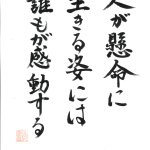 人が懸命に
生きる姿には
誰もが感動する